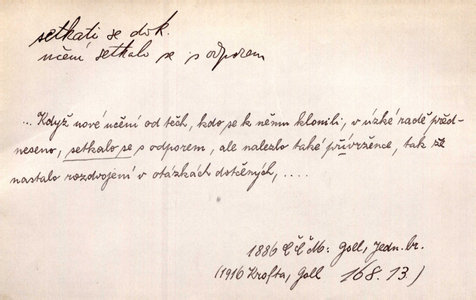 setkati se dok.
učení setkalo se s odporem
... Když nové učení od těch, kdo se k němu klonili, v úzké radě před-
neseno, setkalo se s odporem, ale nalezlo také přívržence, tak že
nastalo rozdvojení v otázkách dotčených, ....
1886 ČČM: Goll, Jedn. br.
(1916 Krofta, Goll 168.13)